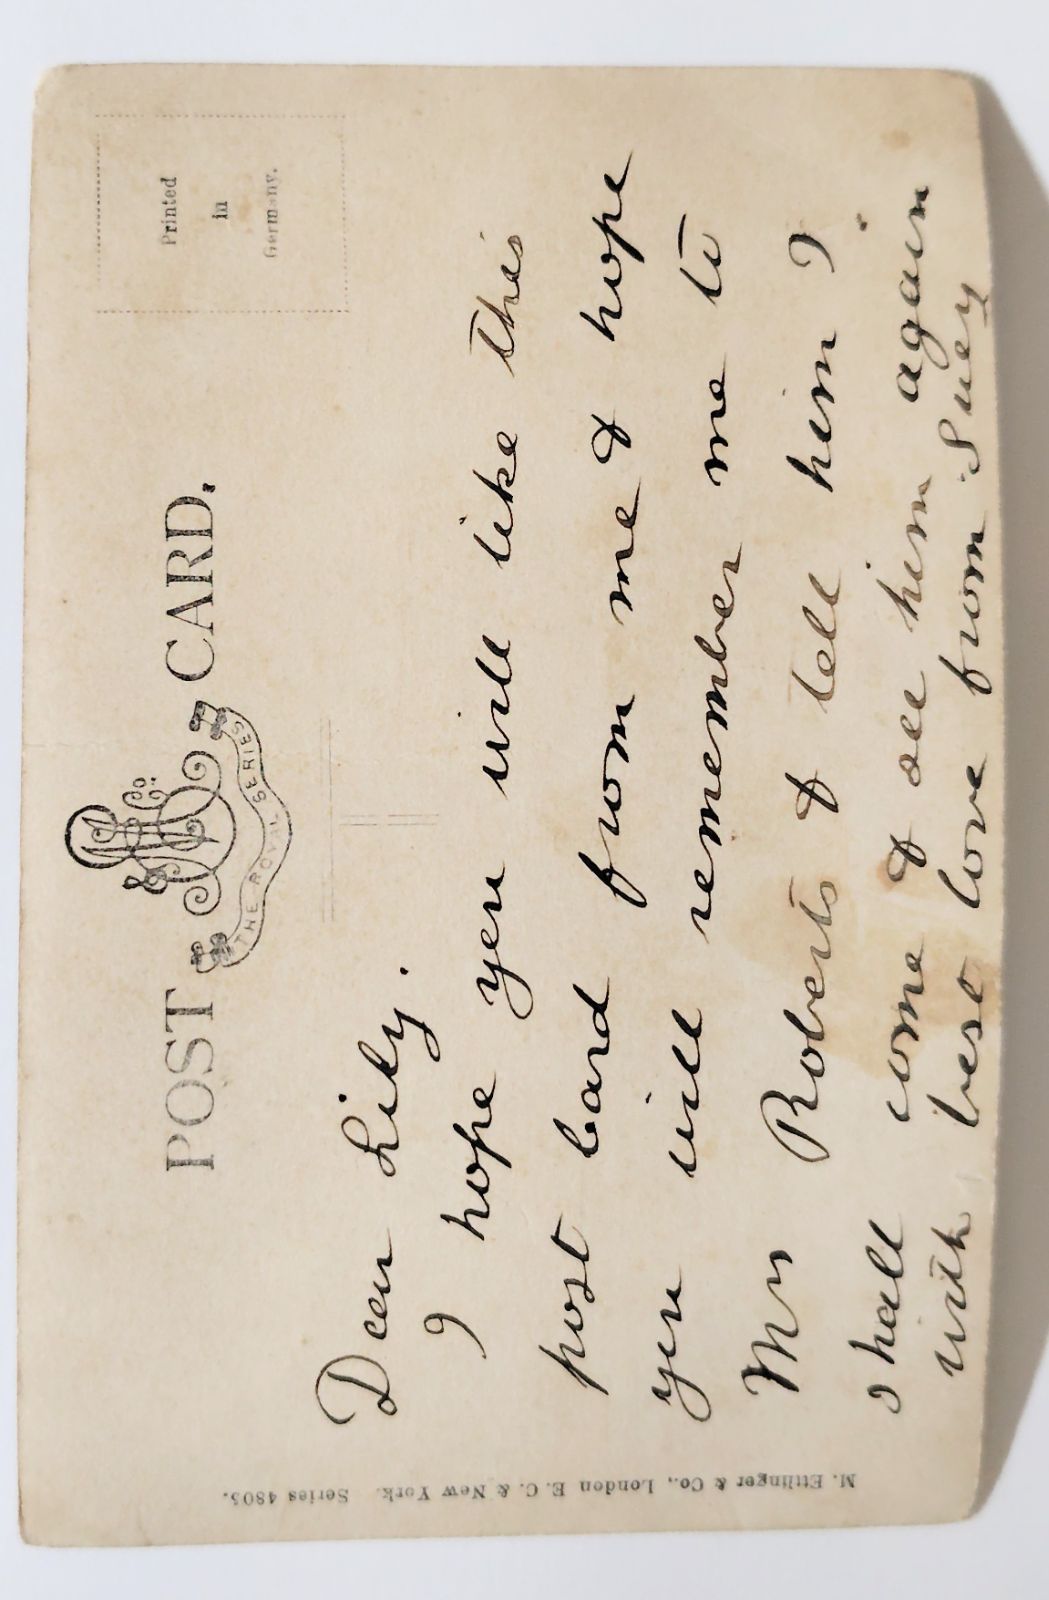 POST CARD.
M. E. & Co.
THE ROYAL SERIES
Printed
in
Germany.
Dear Lily.
I hope you will like this
post card from me & hope
you will remember me to
Mrs Roberts & tell him I
shall come & see him again
with best love from Suey
M. Ettlinger & Co., London E. C. & New York. Series 4805.